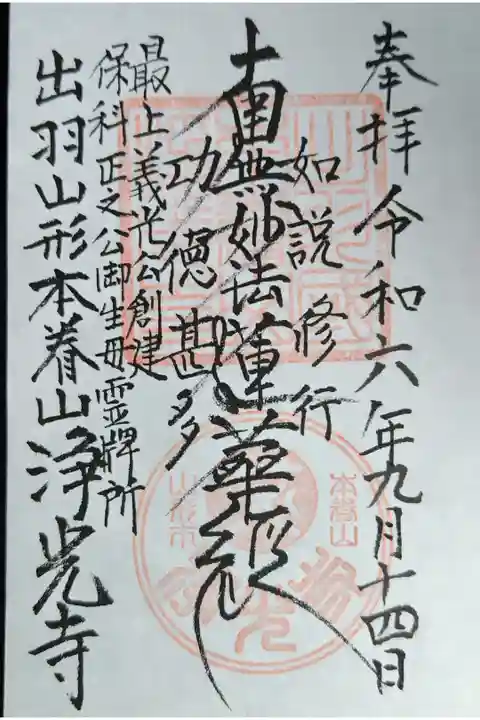 奉拝 令和六年九月十四日
如説修行
南無妙法蓮華経
功徳甚多
最上義光公創建
保科正之公御生母霊牌所
出羽山形本眷山浄光寺
本眷山
山形市